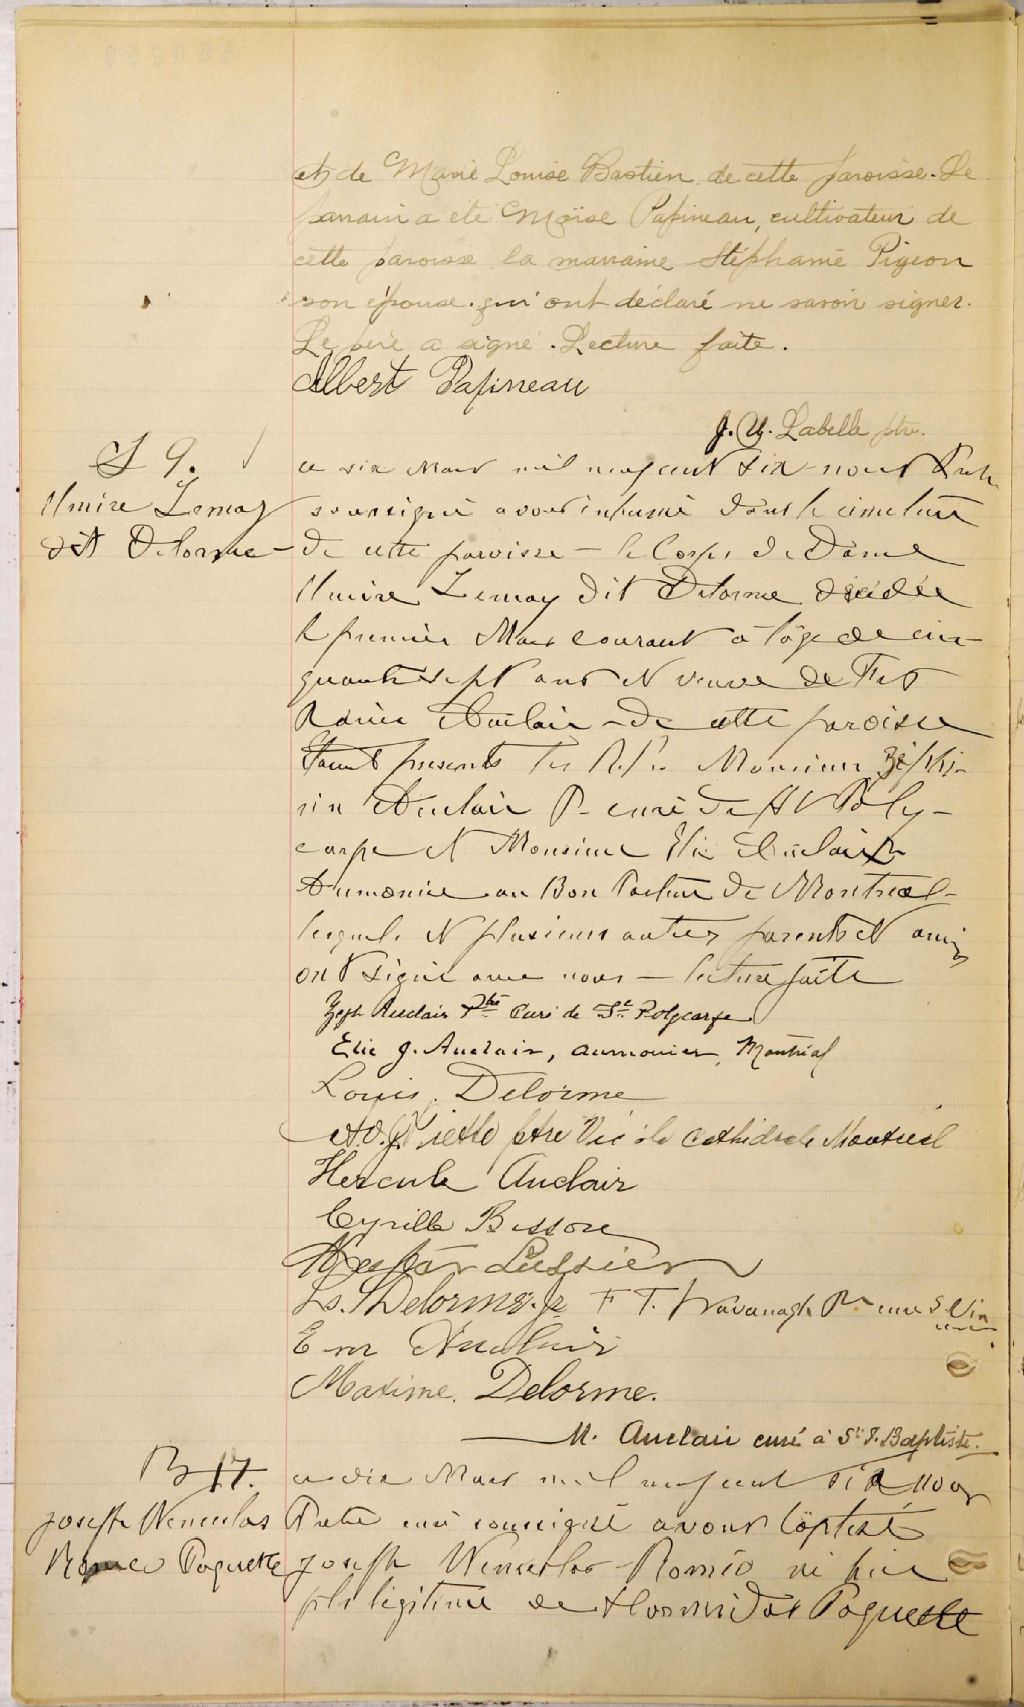 et de Marie Louise Bastien de cette paroisse. Le
parrain a été Moïse Papineau, cultivateur de
cette paroisse la marraine Stéphanie Pigeon
son épouse. qui ont déclaré ne savoir signer.
Le père a signé. Lecture faite.
Albert Papineau
J. U. Labelle ptre.
S 9.
Elmire Lemay
dit Delorme
Ce six Mars mil neuf cent six nous Prêtre
soussigné avons inhumé dans le cimetière
de cette paroisse - le Corps de Dame
Elmire Lemay dit Delorme décédée
le premier Mars courant à l'âge de cin-
quante sept ans et veuve de Feu
Auclair - de cette paroisse
Etaient présents les R.P. Monsieur Zéphi-
rin Auclair P. curé de St Poly-
carpe et Monsieur Elie Auclair
Aumonier au Bon Pasteur de Montreal
lesquels et plusieurs autres parents et amis
ont signé avec nous - lecture faite
Zeph Auclair Ptre Curé de St. Polycarpe
Elie J. Auclair, aumonier, Montréal
Louis Delorme
ptre Vic à la Cathédrale Montreal
Hercule Auclair
Cyrille Bessore
Nestor Lussier
Ls. Delorme. Jr F T. Kavanagh Ptre curé S. Vin
Em Auclair
Maxime. Delorme.
M. Auclair curé à St J. Baptiste.
B 17.
Joseph Wenceslas
Romeo Paquette
Ce dix Mars mil neuf cent six nous
Prêtre curé soussigné avons baptisé
Joseph Wenceslas Roméo né hier
fils légitime de Hormidas Paquette